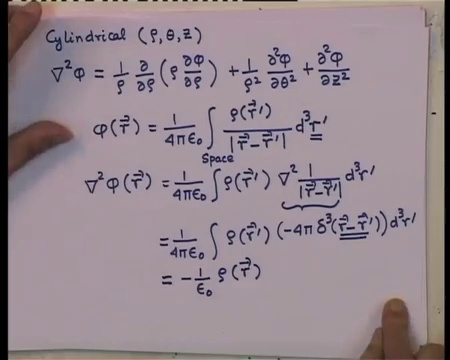 Cylindrical (ρ, θ, z)
∇²φ = 1/ρ ∂/∂ρ (ρ ∂φ/∂ρ) + 1/ρ² ∂²φ/∂θ² + ∂²φ/∂z²
φ(r⃗) = 1/4πε₀ ∫ ρ(r⃗′)/|r⃗−r⃗′| d³r′
Space
∇²φ(r⃗) = 1/4πε₀ ∫ ρ(r⃗′) ∇² 1/|r⃗−r⃗′| d³r′
= 1/4πε₀ ∫ ρ(r⃗′) (−4π δ³(r⃗−r⃗′)) d³r′
= − 1/ε₀ ρ(r⃗)